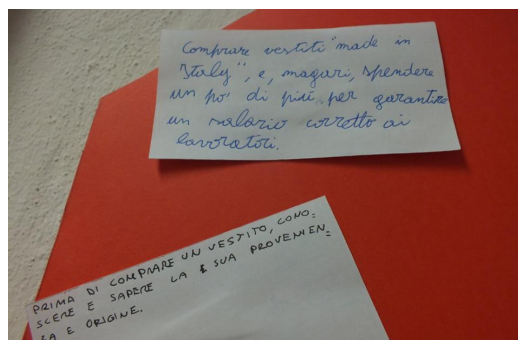 Comprare vestiti "made in
Italy", e, magari, spendere
un po' di più per garantire
un salario corretto ai
lavoratori.
PRIMA DI COMPRARE UN VESTITO, CONO=
SCERE E SAPERE LA SUA PROVENIEN=
ZA E ORIGINE.